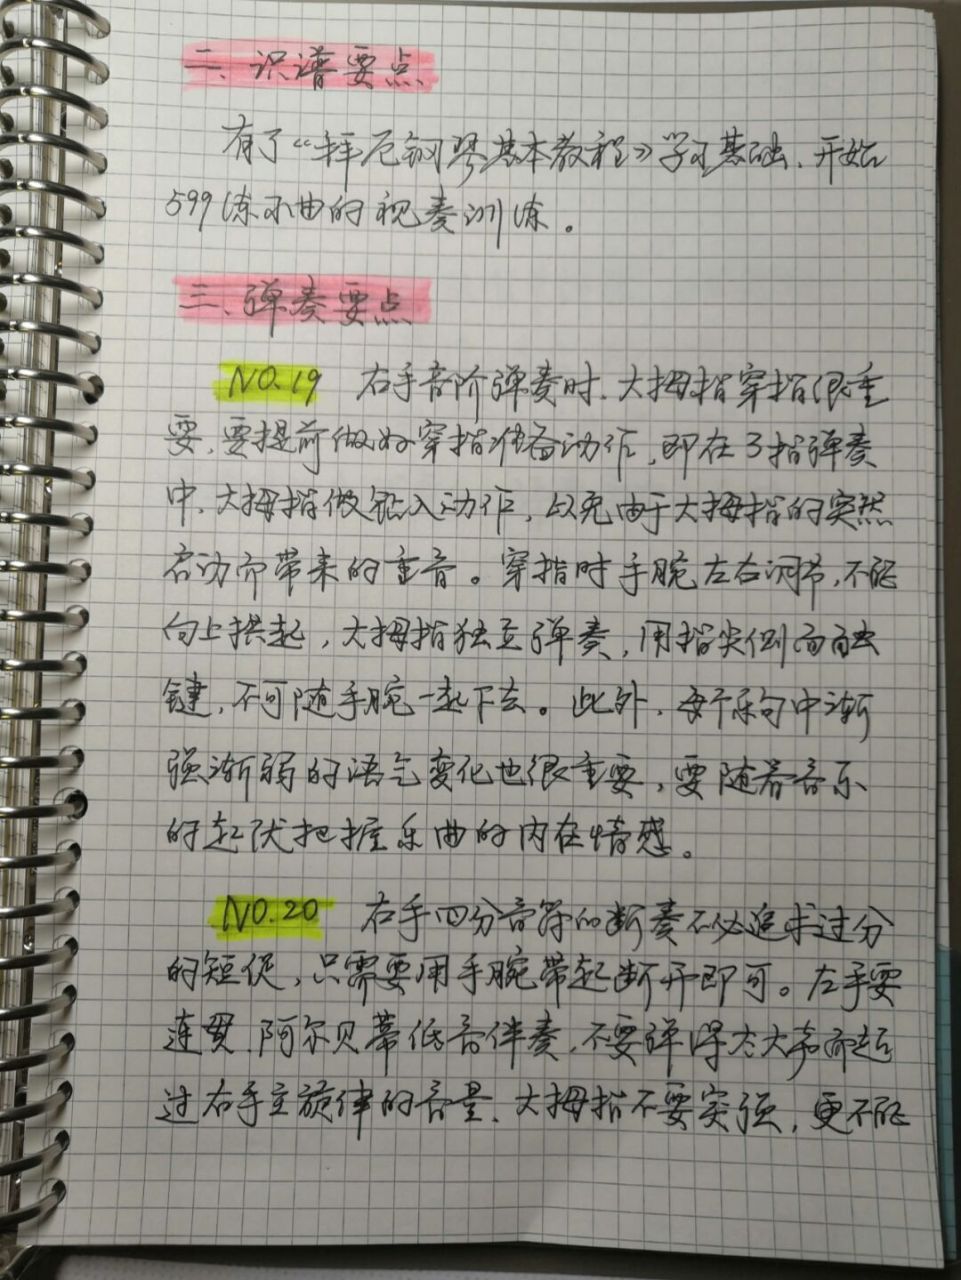 二、识谱要点
有了“拜厄钢琴基本教程》学习基础、开始
599练习曲的视奏训练。
三、弹奏要点
NO.19 右手音阶弹奏时、大拇指穿指很重
要,要提前做好穿指准备动作,即在3指弹奏
中、大拇指做钻入动作,以免由于大拇指的突然
启动而带来的重音。穿指时手腕左右调节,不能
向上拱起,大拇指独立弹奏,用指尖侧面触
键,不可随手腕一起下去。此外、每个乐句中渐
强渐弱的语气变化也很重要,要随着音乐
的起伏把握乐曲的内在情感。
NO.20 右手四分音符的断奏不必追求过分
的短促,只需要用手腕带起断开即可。左手要
连贯、阿尔贝蒂低音伴奏,不要弹得太大声而超
过右手主旋律的音量、大拇指不要突强,更不能